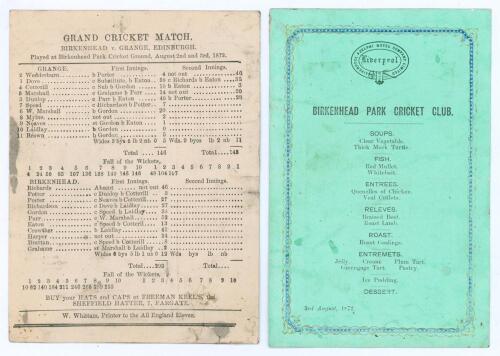 GRAND CRICKET MATCH.
BIRKENHEAD v. GRANGE, EDINBURGH.
Played at Birkenhead Park Cricket Ground, August 2nd and 3rd, 1872.
GRANGE. First Innings. Second Innings.
2 Washburn b Potter 4 not out 46
1 Dove c Substitute, b Eaton 38 c Richards b Eaton 35
4 Cotterill c Sub b Gordon 15 b Eaton 0
5 Marshall c Grahame b Parr 14 not out 20
3 Dunlop c Parr b Eaton b Potter 28
7 Speed c Richardson b Potter 7
6 W. Marshall b Gordon 20
8 Mylne not out 2
9 Neaves c Gordon b Eaton 0
10 Laidlay b Gordon 0
11 Brown b Gordon 5
Total 146 Total
Fall of the Wickets.
1 2 3 4 5 6 7 8 9 10 1 2 3 4 5 6 7 8 9
BIRKENHEAD. First Innings. Second Innings.
Richards Absent not out 46
Potter c Dunlop b Cotterill 3
Porter c Neaves b Cotterill 27
Richardson c Dove b Laidlay 27
Gordon c Speed b Laidlay
Parr c W. Marshall 52
Eaton c Speed b Cotterill 13
Crowther b Laidlay 42
Harper not out 24
Bretton c Speed b Cotterill 8
Grahame st Marshall b Laidlay 2
Total Total
Fall of the Wickets.
1 2 3 4 5 6 7 8 9 10
BUY your HATS and CAPS at FREEMAN KEEL'S, the
SHEFFIELD HATTER, 7, FARGATE.
W. Whittam, Printer to the All England Eleven.
ADELPHI HOTEL COMPANY
Liverpool
BIRKENHEAD PARK CRICKET CLUB.
SOUPS.
Clear Vegetable.
Thick Mock Turtle.
FISH.
Red Mullet.
Whitebait.
ENTREES.
Quenelles of Chicken.
Veal Cutlets.
RELEVES.
Braised Beef.
Roast Lamb.
ROAST.
Roast Goslings.
ENTREMETS.
Jelly. Cream. Plum Tart.
Greengage Tart. Pastry.
Ice Pudding.
DESSERT.
3rd August, 1872.